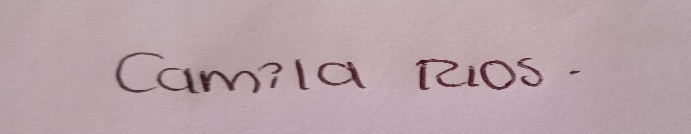 Camila Rios.